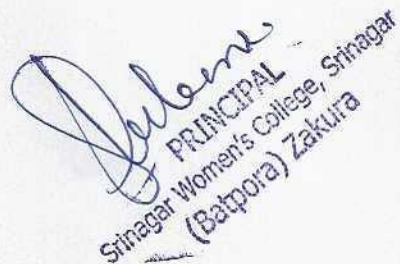 PRINCIPAL
Srinagar Women's College, Srinagar
(Batpora) Zakura